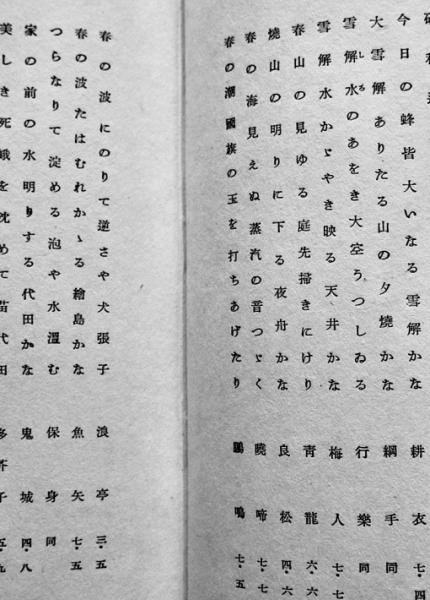 今日の蜂皆大いなる雪解かな　耕衣　七・四
大雪解ありたる山の夕燒かな　綱手　同
雪解水のあをき大空うつしゐる　行樂　同
雪解水かゞやき映る天井かな　梅人　七・七
春山の見ゆる庭先掃きにけり　青龍　六・六
燒山の明りに下る夜舟かな　良松　四・六
春の海見えぬ蒸汽の音つゞく　曉啼　七・七
春の潮國旗の玉を打ちあげたり　鷗鳴　七・五
春の波にのりて逆さや犬張子　浪亭　三・五
春の波たはむれかゝる繪島かな　魚矢　七・五
つらなりて淀める泡や水温む　保身　同
家の前の水明りする代田かな　鬼城　四・八
美しき死蛾を沈めて苗代田　多芥子　五・九